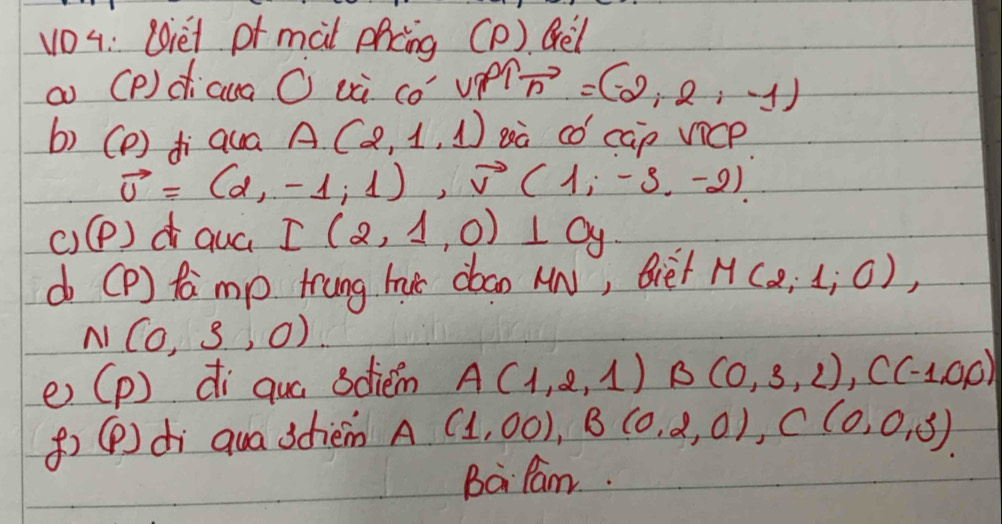 VD4: Viết pt mặt phẳng (P) biết
a) (P) đi qua O và có VTPT n⃗ = (-2; 2; -1)
b) (P) đi qua A (2, 1, 1) và có cặp VTCP
u⃗ = (2, -1; 1), v⃗ (1; -3, -2)
c) (P) đi qua I (2, 1, 0) ⊥ Oy.
d (P) là mp trung trực đoạn MN, biết M (2; 1; 0),
N (0, 3, 0).
e) (P) đi qua 3 điểm A (1, 2, 1) B (0, 3, 2), C (-1,0,0)
f) (P) đi qua 3 điểm A (1, 00), B (0, 2, 0), C (0, 0, 3).
Bài làm.